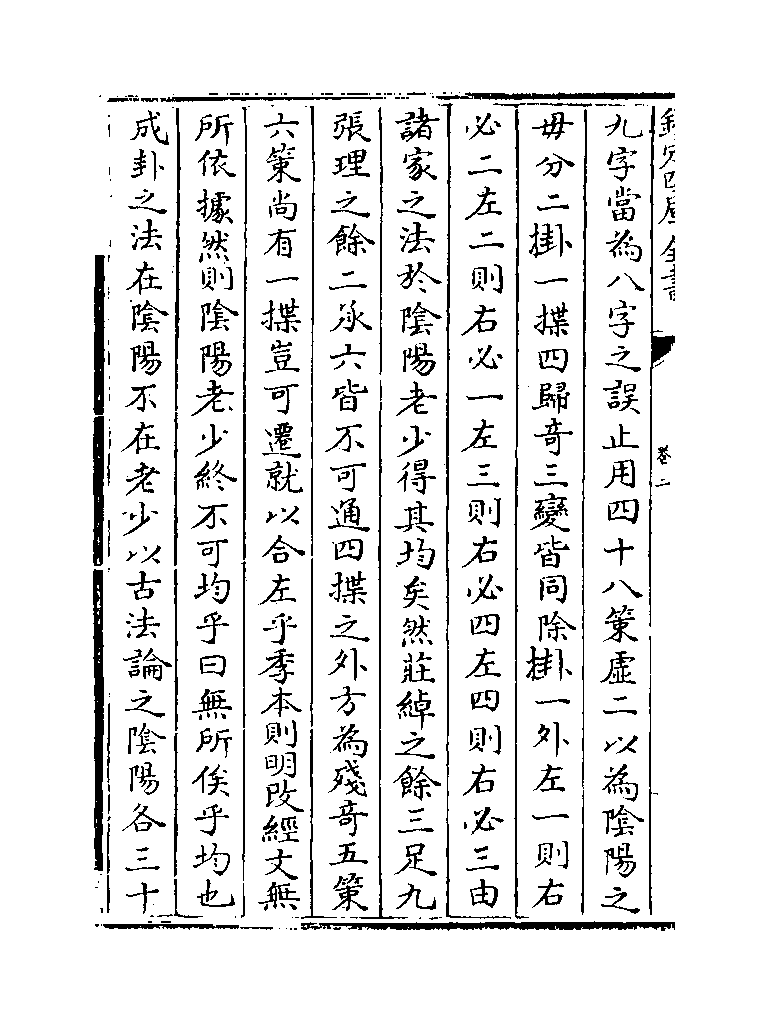 欽定四庫全書
卷二
九字當為八字之誤止用四十八策虛二以為陰陽之
毋分二掛一揲四歸奇三變皆同除掛一外左一則右
必二左二則右必一左三則右必四左四則右必三由
諸家之法於陰陽老少得其均矣然莊綽之餘三足九
張理之餘二承六皆不可通四揲之外方為殘奇五策
六策尚有一揲豈可遷就以合左乎季本則明改經文無
所依據然則陰陽老少終不可均乎曰無所俟乎均也
成卦之法在陰陽不在老少以古法論之陰陽各三十